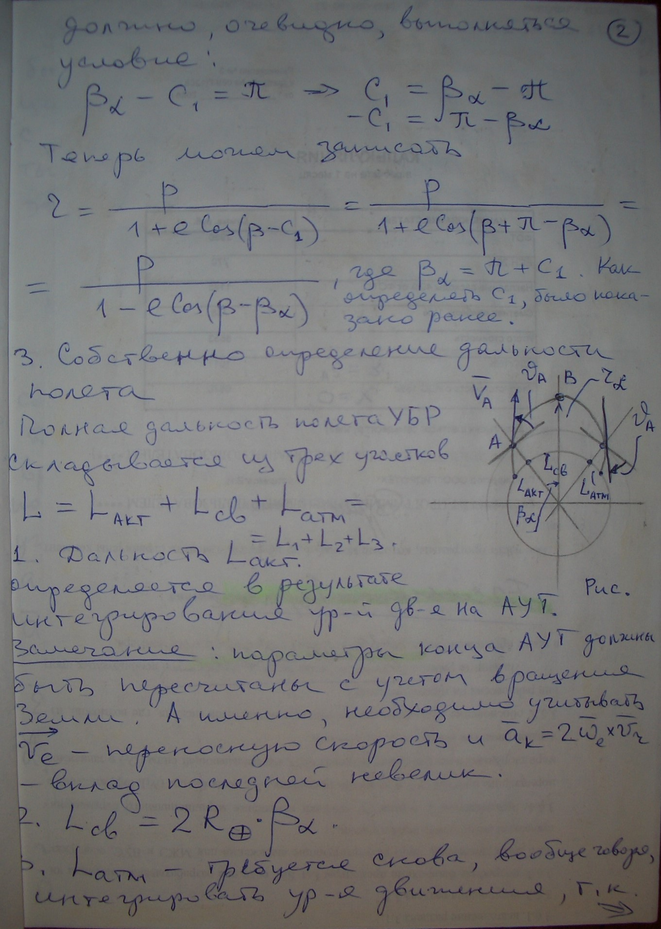 должно, очевидно, выполняться
2
условие:
β_α − C₁ = π ⇒ C₁ = β_α − π
−C₁ = π − β_α
Теперь можем записать
r = p / (1 + e Cos(β − C₁)) = p / (1 + e Cos(β + π − β_α)) =
= p / (1 − e Cos(β − β_α)), где β_α = π + C₁. Как
определять C₁, было пока-
зано ранее.
3. Собственно определение дальности
полета
V̄_A ϑ_A B r_α
A ϑ_A
L_св
L_акт L_атм
β_α
Рис.
Полная дальность полета УБР
складывается из трех участков
L = L_АКТ + L_св + L_атм =
= L₁ + L₂ + L₃.
1. Дальность L_акт.
определяется в результате
интегрирования ур-й дв-я на АУТ.
Замечание: параметры конца АУТ должны
быть пересчитаны с учетом вращения
Земли. А именно, необходимо учитывать
V̄_e – переносную скорость и ā_к = 2ω̄_e × v̄_r
– вклад последней невелик.
2. L_св = 2R_⊕ · β_α.
3. L_атм – требуется снова, вообще говоря,
интегрировать ур-я движения, т.к.
⇒